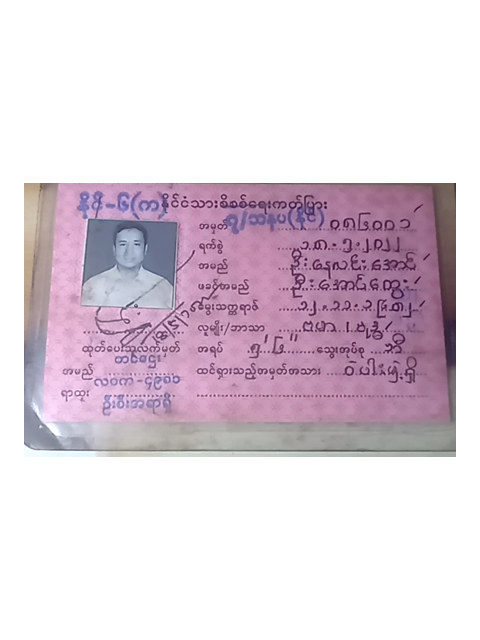 နိုင်ငံသားစိစစ်ရေးကတ်ပြား
အမှတ် ၇/သနပ(နိုင်) ၀၈၆၀၀၁
ရက်စွဲ ၁၈.၅.၂၀၂၂
အမည် ဦးနေလင်းအောင်
ဖခင်အမည် ဦးအောင်ထွေး
မွေးသက္ကရာဇ် ၁၂.၁၁.၁၉၈၂
လူမျိုး/ဘာသာ ဗမာ/ဗုဒ္ဓ
အရပ် ၅'၆" သွေးအုပ်စု ဘီ
ထင်ရှားသည့်အမှတ်အသား ဝဲပါးမှဲ့ရှိ
ထုတ်ပေးသူလက်မှတ်
အမည် တင်ဌေး
လဝက-၄၉၁၁
ရာထူး ဦးစီးအရာရှိ